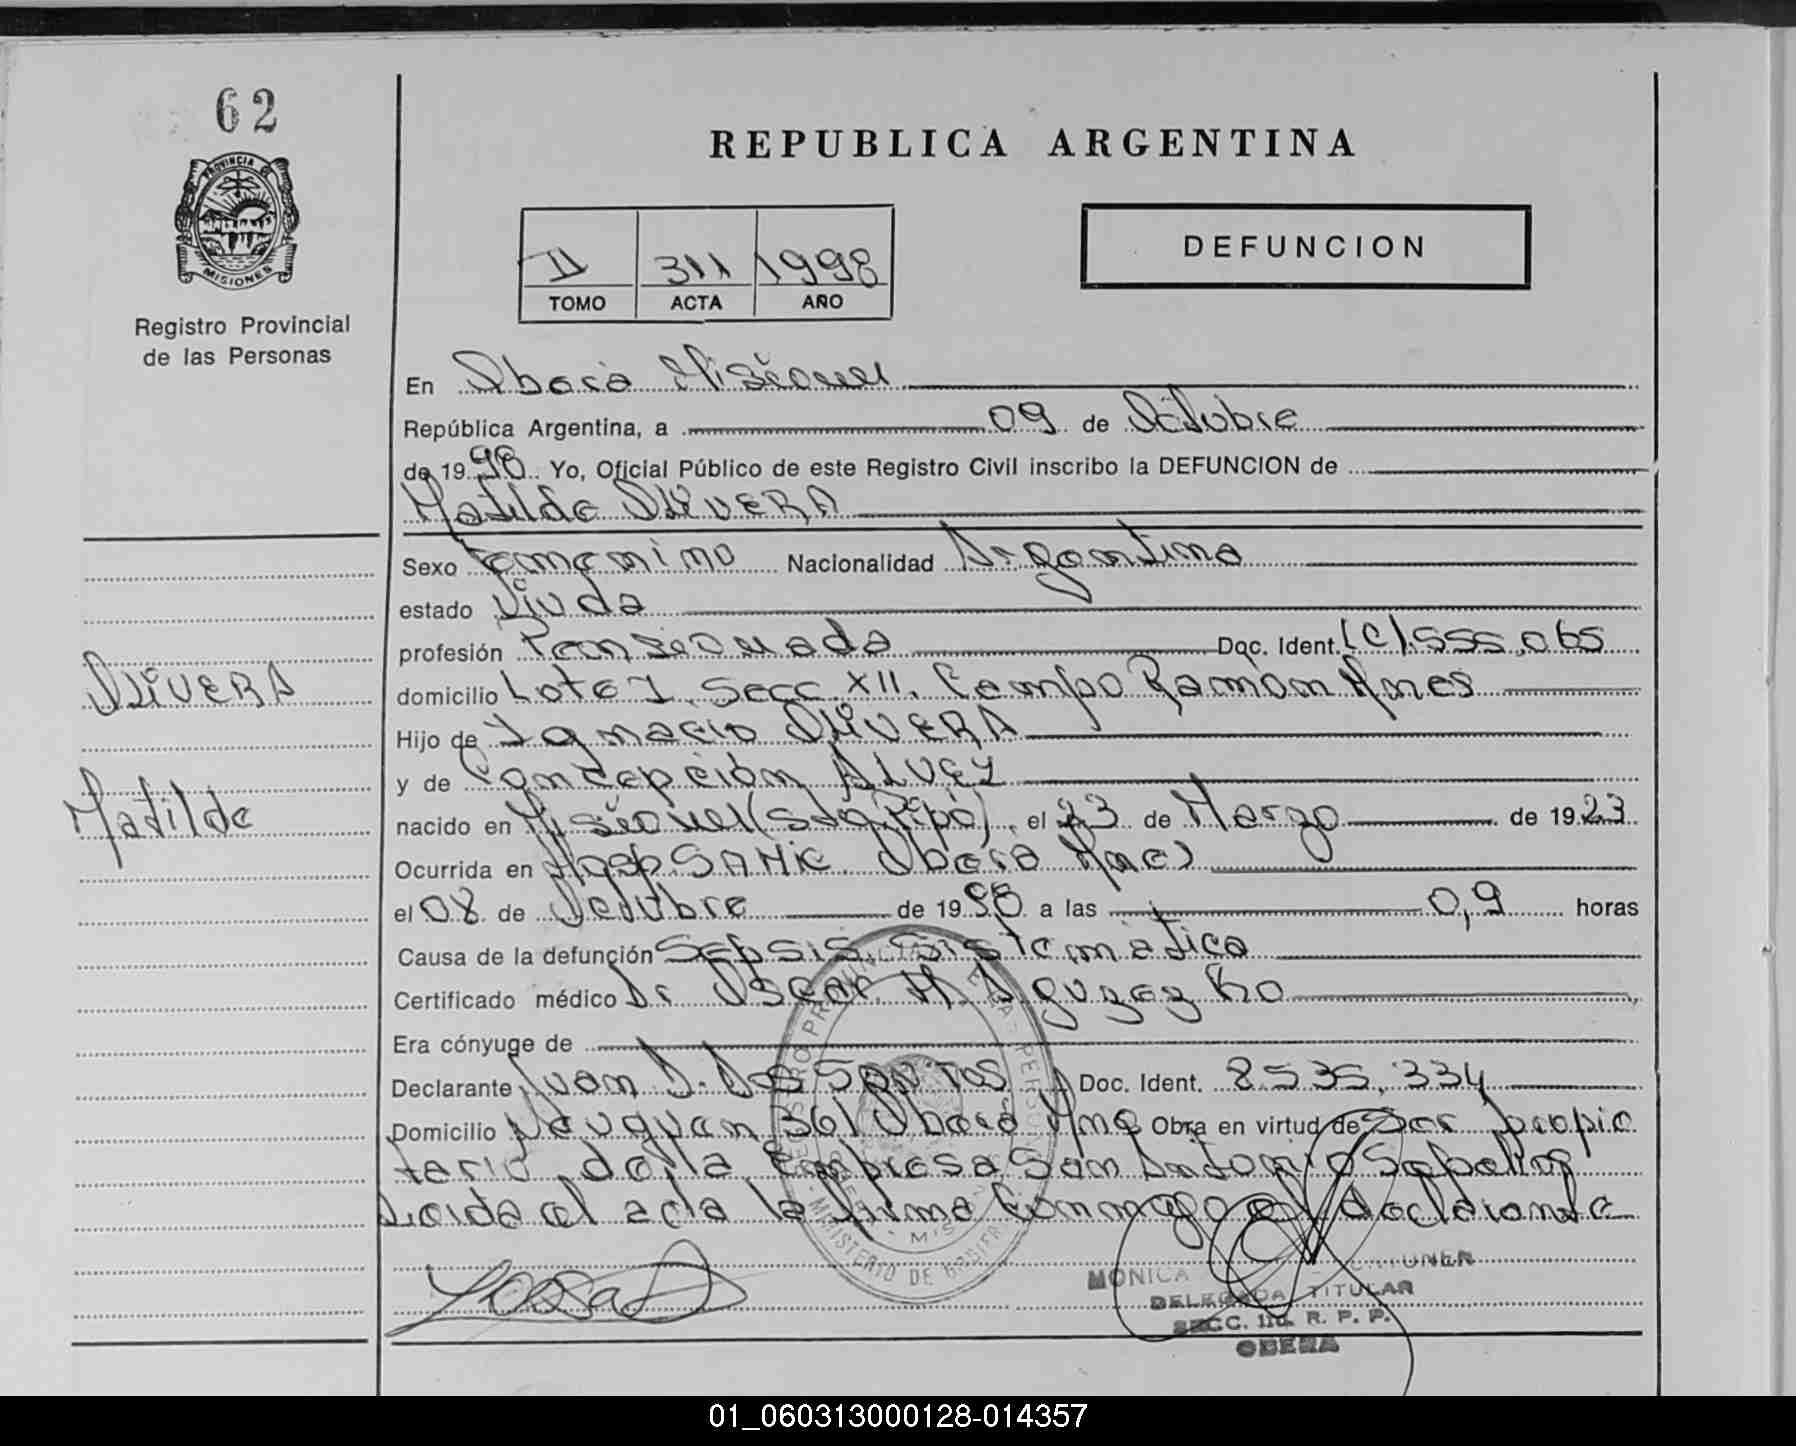 62
PROVINCIA
MISIONES
Registro Provincial
de las Personas
REPUBLICA ARGENTINA
II 311 1998
TOMO ACTA AÑO
DEFUNCION
En Oberá Misiones
República Argentina, a 09 de Octubre
de 1998 Yo, Oficial Público de este Registro Civil inscribo la DEFUNCION de
Matilde OLIVERA
Sexo Femenino Nacionalidad Argentina
estado Viuda
profesión Pensionada Doc. Ident. (C).555.065
OLIVERA
domicilio Lote 1 Secc XII. Campo Ramón Mnes
Hijo de Ignacio OLIVERA
y de Concepción ALVEZ
Matilde
nacido en Misiones (Sdg. Pipó), el 23 de Marzo de 1923
Ocurrida en Hosp. SAMIC. Oberá Mnes
el 08 de Octubre de 1998 a las 0,9 horas
Causa de la defunción Sepsis Sistemática
Certificado médico Dr Oscar M.
Era cónyuge de
Declarante Juan D. Dos SANTOS Doc. Ident. 8.535.334
Domicilio Neuquen 361 Oberá Mnes Obra en virtud de Ser propie
tario de la Empresa San Antonio Sepelios
Leida el acta la firma Conmigo el declarante
MINISTERIO DE GOBIER
MONICA
DELEGADA TITULAR
SECC. 1ra. R. P. P.
OBERA
01_060313000128-014357